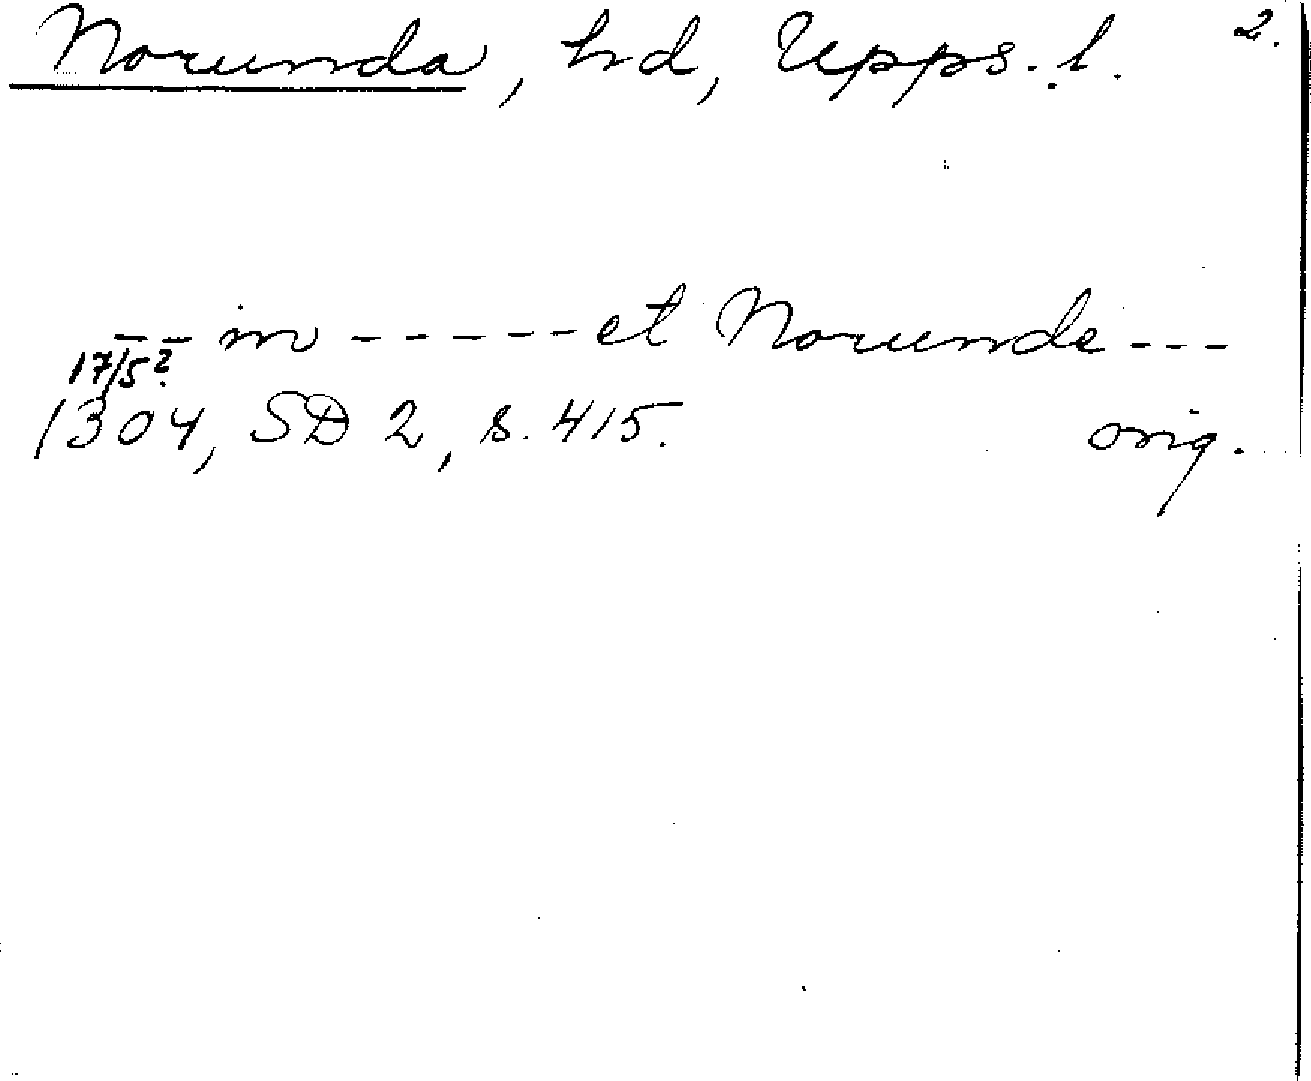 Norunda, hd, Upps. l. 2.
-- in ----- et Norunde ---
17/5?
1304, SD 2, s. 415. orig.